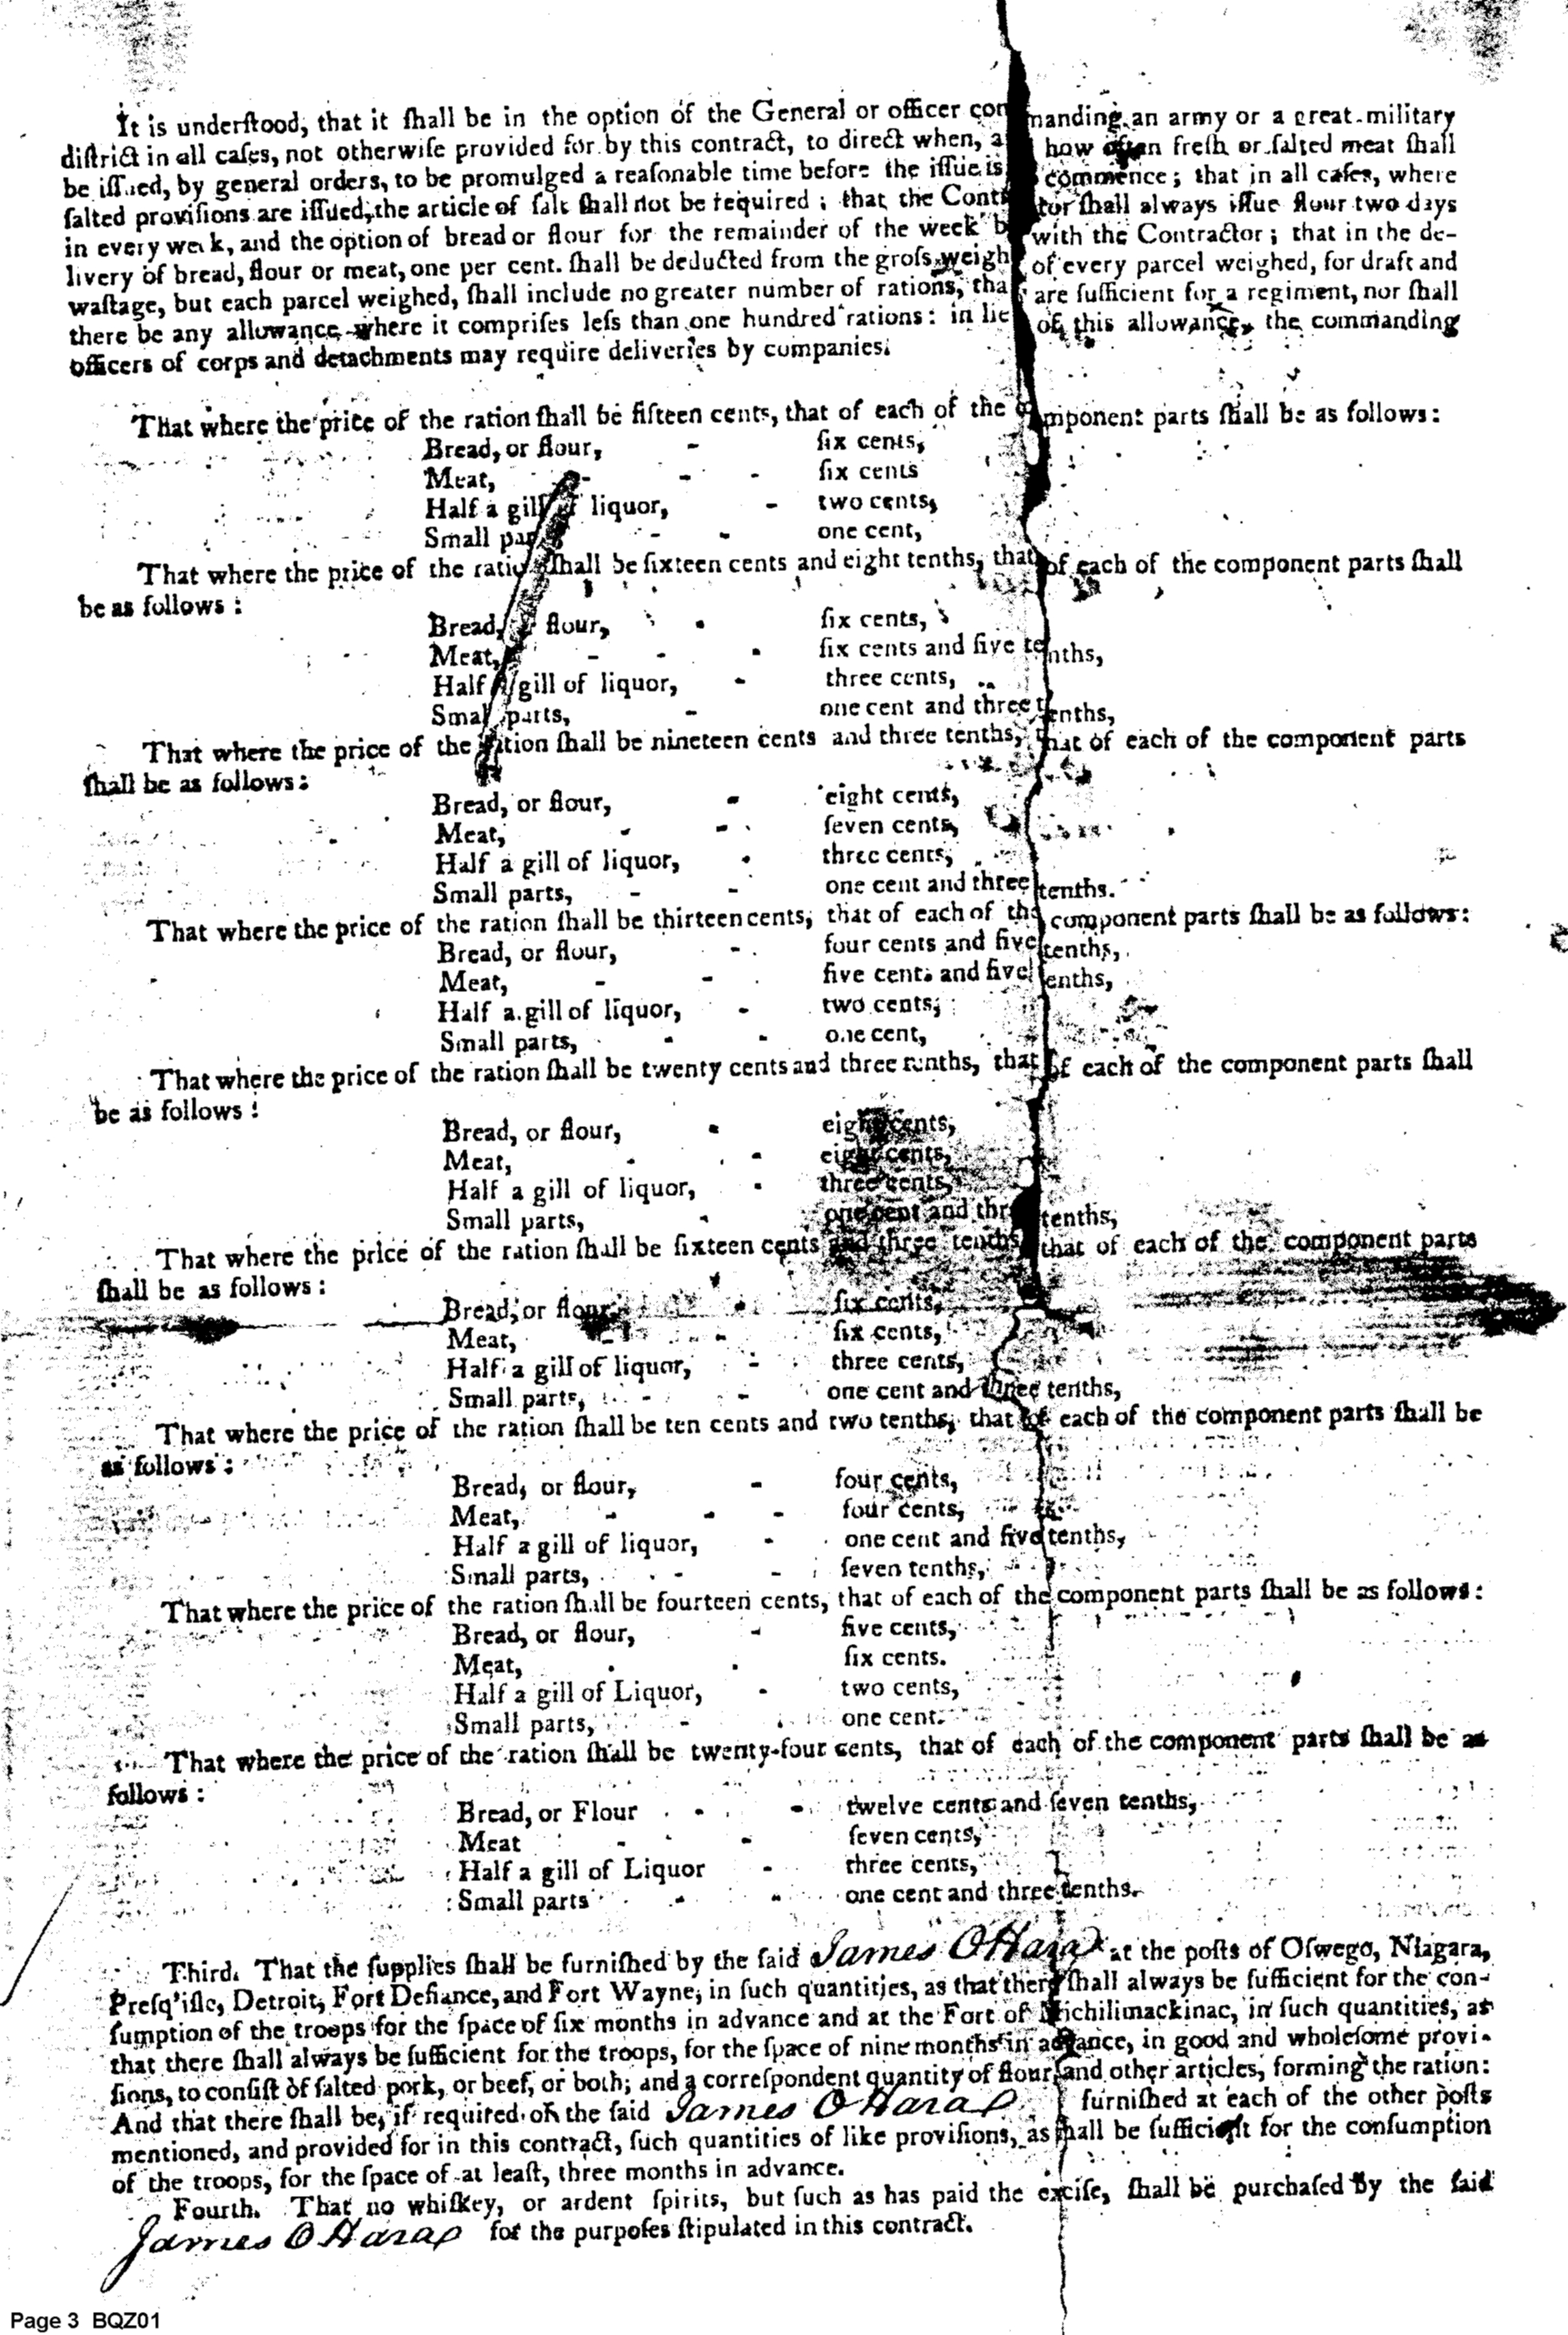 It is understood, that it ſhall be in the option of the General or officer con manding an army or a great military
diſtrict in all caſes, not otherwiſe provided for by this contract, to direct when, a how often freſh or ſalted meat ſhall
be iſſued, by general orders, to be promulged a reaſonable time before the iſſue is commence; that in all caſes, where
ſalted proviſions are iſſued, the article of ſalt ſhall not be required; that the Cont tor ſhall always iſſue flour two days
in every week, and the option of bread or flour for the remainder of the week b with the Contractor; that in the de-
livery of bread, flour or meat, one per cent. ſhall be deducted from the groſs weigh of every parcel weighed, for draft and
waſtage, but each parcel weighed, ſhall include no greater number of rations, tha are ſufficient for a regiment, nor ſhall
there be any allowance where it compriſes leſs than one hundred rations: in lie of this allowance, the commanding
officers of corps and detachments may require deliveries by companies.
That where the price of the ration ſhall be fifteen cents, that of each of the component parts ſhall be as follows:
Bread, or flour, - ſix cents,
Meat, - - - ſix cents
Half a gill of liquor, - two cents,
Small parts - - one cent,
That where the price of the ration ſhall be ſixteen cents and eight tenths, that of each of the component parts ſhall
be as follows:
Bread, or flour, - ſix cents,
Meat, - - - ſix cents and five tenths,
Half a gill of liquor, - three cents,
Small parts, - one cent and three tenths,
That where the price of the ration ſhall be nineteen cents and three tenths, that of each of the component parts
ſhall be as follows:
Bread, or flour, - eight cents,
Meat, - - ſeven cents,
Half a gill of liquor, - three cents,
Small parts, - - one cent and three tenths.
That where the price of the ration ſhall be thirteen cents, that of each of the component parts ſhall be as follows:
Bread, or flour, - four cents and five tenths,
Meat, - - five cents and five tenths,
Half a gill of liquor, - two cents,
Small parts, - - one cent,
That where the price of the ration ſhall be twenty cents and three tenths, that of each of the component parts ſhall
be as follows:
Bread, or flour, - eight cents,
Meat, - - eight cents,
Half a gill of liquor, - three cents,
Small parts, - one cent and thr tenths,
That where the price of the ration ſhall be ſixteen cents and three tenths that of each of the component parts
ſhall be as follows:
Bread, or flour, - ſix cents,
Meat, - - ſix cents,
Half a gill of liquor, - three cents,
Small parts, - - one cent and three tenths,
That where the price of the ration ſhall be ten cents and two tenths, that of each of the component parts ſhall be
as follows:
Bread, or flour, - four cents,
Meat, - - - four cents,
Half a gill of liquor, - one cent and five tenths,
Small parts, - - ſeven tenths,
That where the price of the ration ſhall be fourteen cents, that of each of the component parts ſhall be as follows:
Bread, or flour, - five cents,
Meat, - - ſix cents.
Half a gill of Liquor, - two cents,
Small parts, - one cent.
That where the price of the ration ſhall be twenty-four cents, that of each of the component parts ſhall be as
follows:
Bread, or Flour - - twelve cents and ſeven tenths,
Meat - - ſeven cents,
Half a gill of Liquor - three cents,
Small parts - - one cent and three tenths.
Third. That the ſupplies ſhall be furniſhed by the ſaid James OHara at the poſts of Oſwego, Niagara,
Preſq'iſle, Detroit, Fort Defiance, and Fort Wayne, in ſuch quantities, as that there ſhall always be ſufficient for the con-
ſumption of the troops for the ſpace of ſix months in advance and at the Fort of Michilimackinac, in ſuch quantities, as
that there ſhall always be ſufficient for the troops, for the ſpace of nine months in advance, in good and wholeſome provi-
ſions, to conſiſt of ſalted pork, or beef, or both; and a correſpondent quantity of flour, and other articles, forming the ration:
And that there ſhall be, if required, of the ſaid James OHara furniſhed at each of the other poſts
mentioned, and provided for in this contract, ſuch quantities of like proviſions, as ſhall be ſufficient for the conſumption
of the troops, for the ſpace of at leaſt, three months in advance.
Fourth. That no whiſkey, or ardent ſpirits, but ſuch as has paid the exciſe, ſhall be purchaſed by the ſaid
James OHara for the purpoſes ſtipulated in this contract.
Page 3 BQZ01